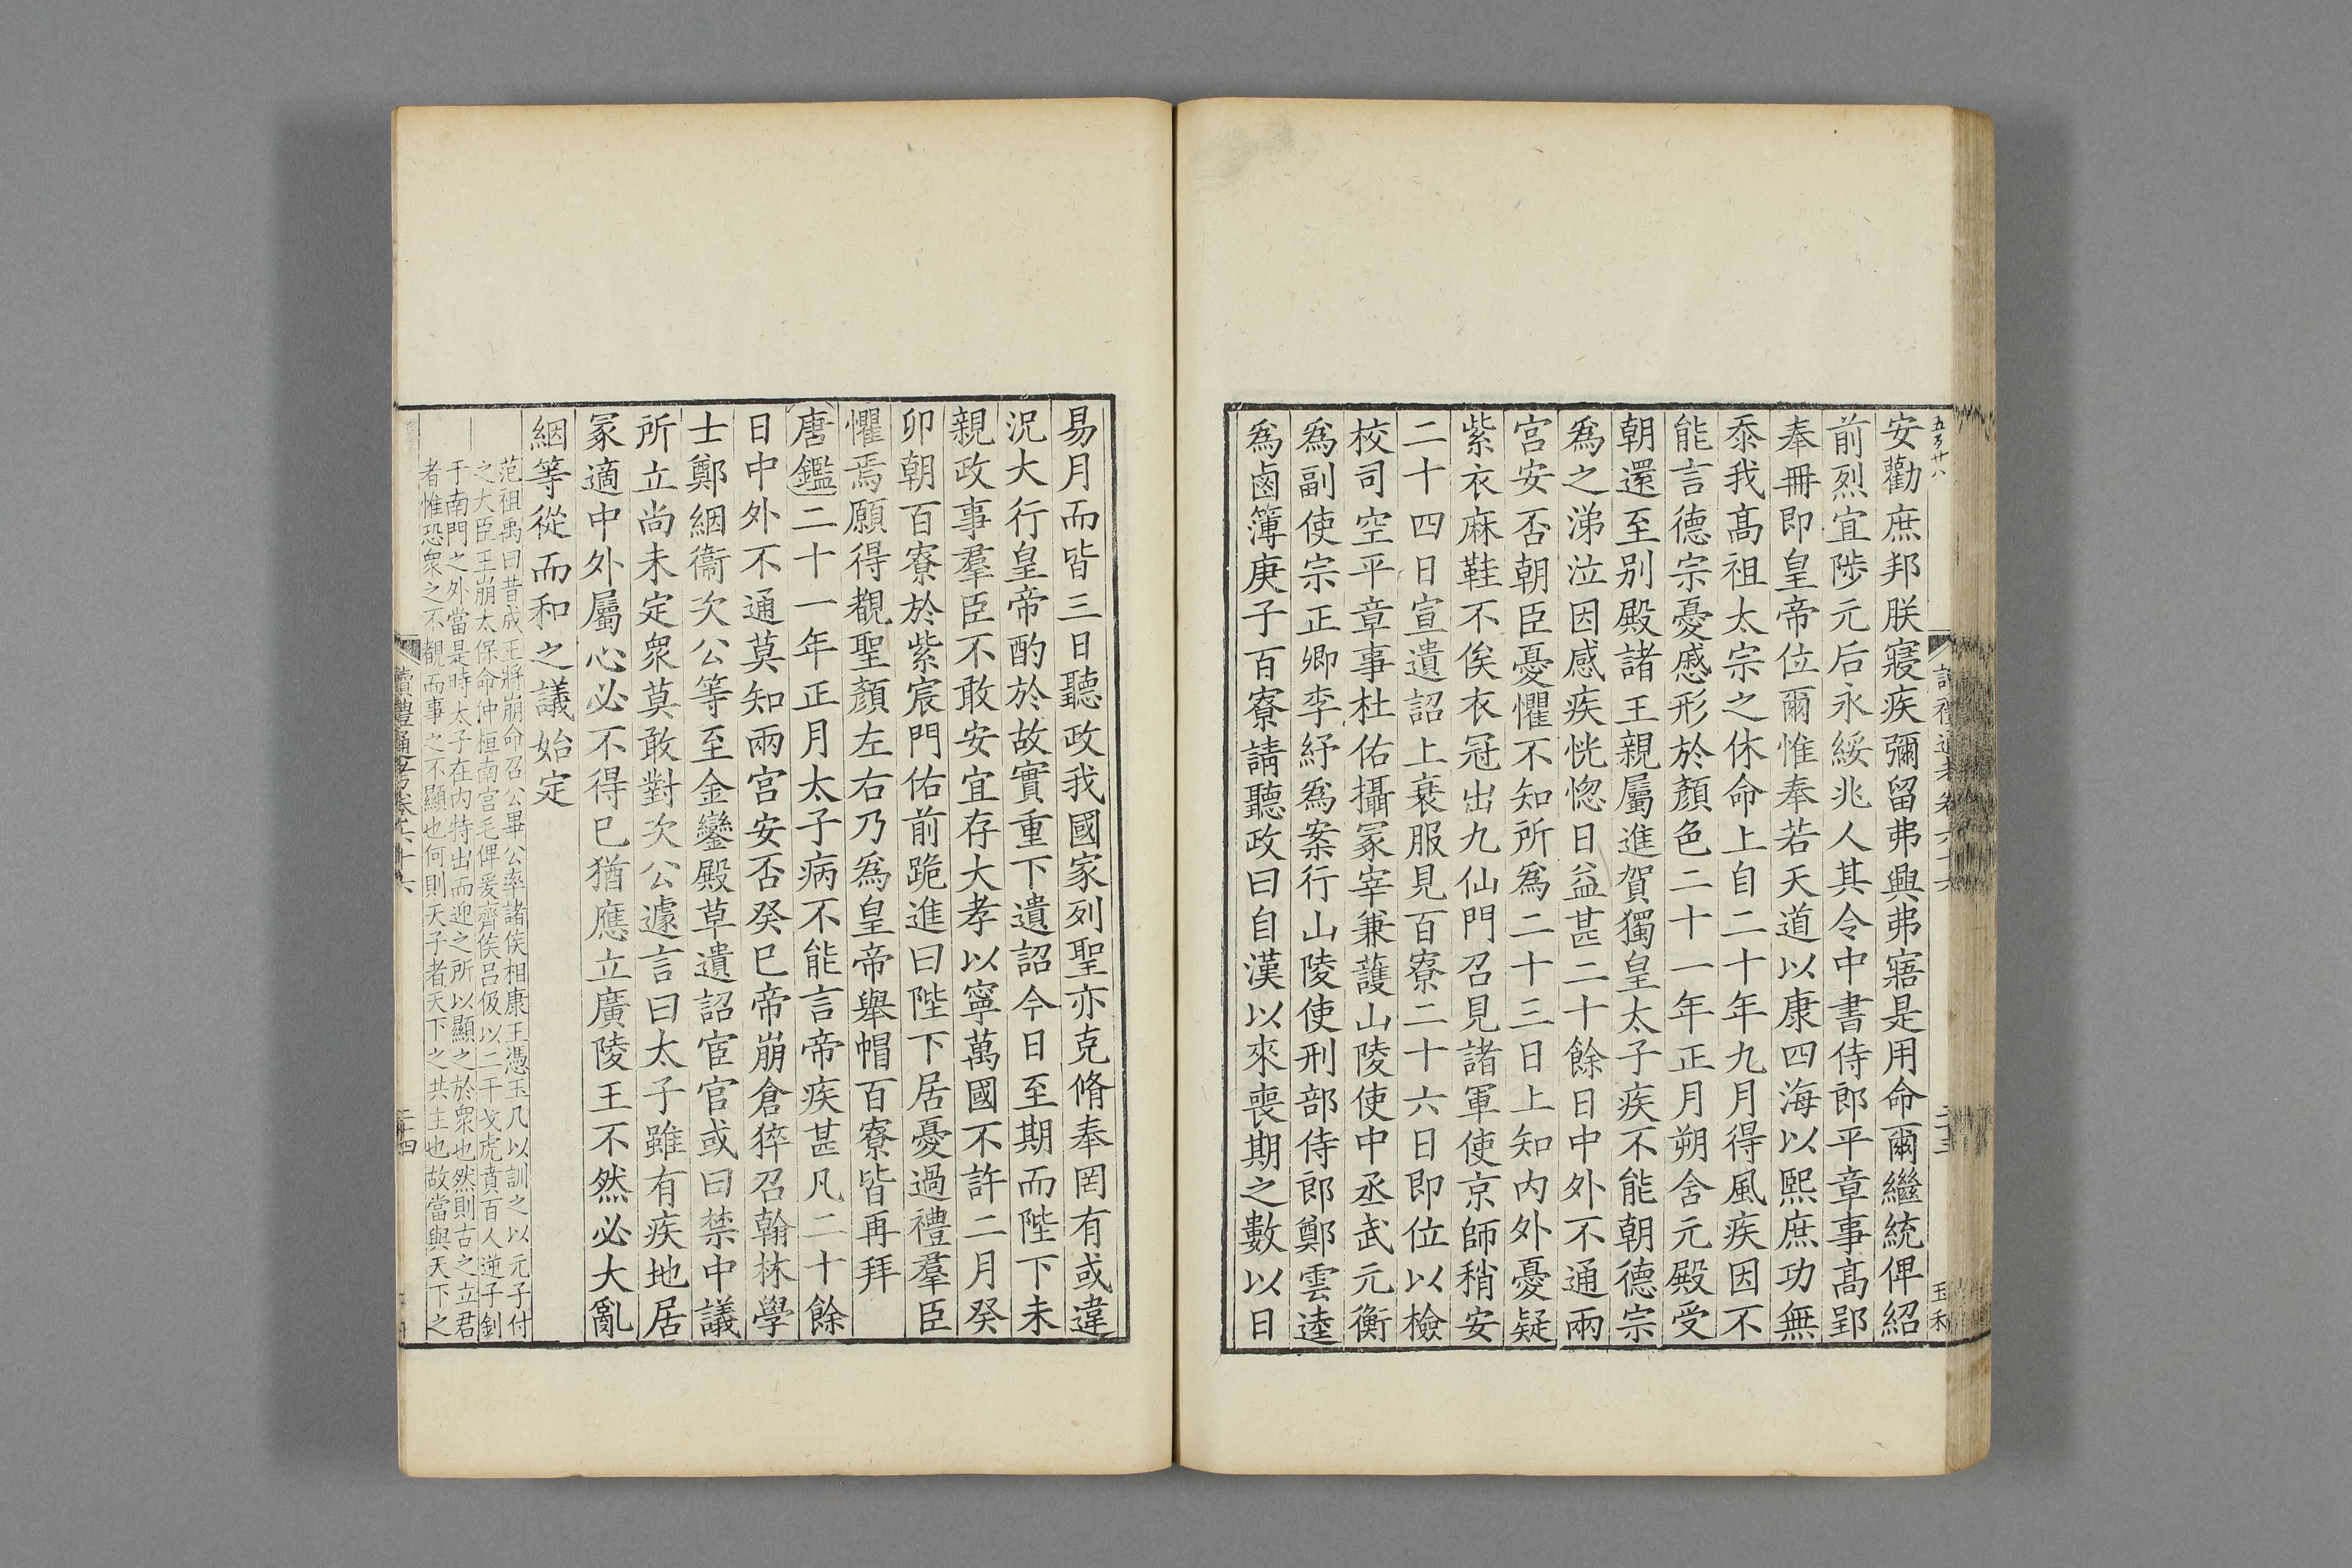 安勸庶邦朕寢疾彌留弗興弗寤是用命爾繼統俾紹
前烈宜陟元后永綏兆人其令中書侍郎平章事高郢
奉冊即皇帝位爾惟奉若天道以康四海以熙庶功無
忝我高祖太宗之休命上自二十年九月得風疾因不
能言德宗憂慼形於顏色二十一年正月朔含元殿受
朝還至別殿諸王親屬進賀獨皇太子疾不能朝德宗
爲之涕泣因感疾恍惚日益甚二十餘日中外不通兩
宮安否朝臣憂懼不知所爲二十三日上知內外憂疑
紫衣麻鞋不俟衣冠出九仙門召見諸軍使京師稍安
二十四日宣遺詔上衰服見百寮二十六日即位以檢
校司空平章事杜佑攝冢宰兼䕶山陵使中丞武元衡
爲副使宗正卿李紓爲案行山陵使刑部侍郎鄭雲逵
爲鹵簿庚子百寮請聽政曰自漢以來喪期之數以日
易月而皆三日聽政我國家列聖亦克脩奉罔有或違
況大行皇帝酌於故實重下遺詔今日至期而陛下未
親政事羣臣不敢安宜存大孝以寧萬國不許二月癸
卯朝百寮於紫宸門佑前跪進曰陛下居憂過禮羣臣
懼焉願得覩聖顏左右乃爲皇帝舉帽百寮皆再拜
唐鑑二十一年正月太子病不能言帝疾甚凡二十餘
日中外不通莫知兩宮安否癸巳帝崩倉猝召翰林學
士鄭絪衞次公等至金鑾殿草遺詔宦官或曰禁中議
所立尚未定衆莫敢對次公遽言曰太子雖有疾地居
冢適中外屬心必不得已猶應立廣陵王不然必大亂
絪等從而和之議始定
范祖禹曰昔成王將崩命召公畢公率諸侯相康王憑玉几以訓之以元子付
之大臣王崩太保命仲桓南宮毛俾爰齊侯呂伋以二干戈虎賁百人逆子釗
于南門之外當是時太子在內特出而迎之所以顯之於衆也然則古之立君
者惟恐衆之不覩而事之不顯也何則天子者天下之共主也故當與天下之
讀禮通考卷六十六
二十四